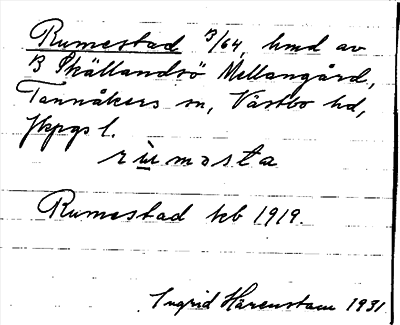 Rumestad 3/64, hmd av
B Skällandsö Mellangård,
Tannåkers sn, Västbo hd,
Jkpgs l.
rùmosta
Rumestad kb 1919.
Ingrid Härenstam 1931